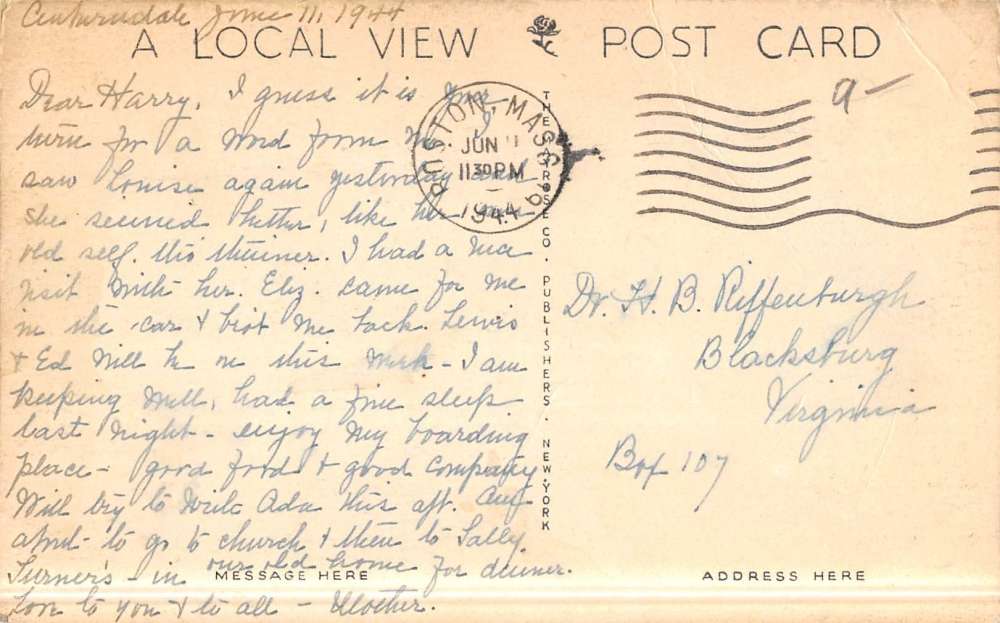 Centerdale June 11, 1944
A LOCAL VIEW POST CARD
Dear Harry, I guess it is your
turn for a word from me. I
saw Louise again yesterday and
she seemed better, like her
old self. this I had a nice
visit with her. Eliz. came for me
in the car & brot me back. Lewis
& Ed will be on this week - I am
keeping well, had a fine sleep
last night - enjoy my boarding
place - good food & good company
Will try to write Ada this aft. Am
about to go to church & then to Sally
Turner's - in our old home for dinner.
Love to you & to all - Mother.
MESSAGE HERE
BOSTON, MASS.
JUN 11
11 30 PM
1944
THE CO. PUBLISHERS. NEW YORK
9-
Dr. H. B. Riffenburgh
Blacksburg
Virginia
Box 107
ADDRESS HERE